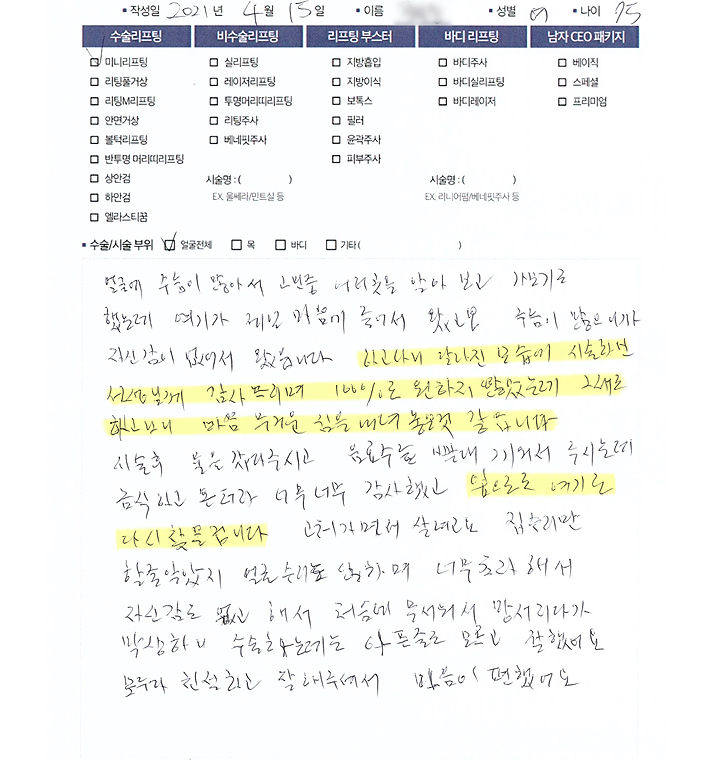 • 작성일 2021년 4월 15일 • 이름 • 성별 여 • 나이 75
수술리프팅 비수술리프팅 리프팅 부스터 바디 리프팅 남자 CEO 패키지
미니리프팅 실리프팅 지방흡입 바디주사 베이직
리팅풀거상 레이저리프팅 지방이식 바디실리프팅 스페셜
리팅M리프팅 투명머리띠리프팅 보톡스 바디레이저 프리미엄
안면거상 리팅주사 필러
볼턱리프팅 베네핏주사 윤곽주사
반투명 머리띠리프팅 피부주사
상안검 시술명 : ( ) 시술명 : ( )
하안검 EX. 울쎄라/민트실 등 EX. 리니어펌/베네핏주사 등
엘라스티꿈
• 수술/시술 부위 얼굴전체 목 바디 기타 ( )
얼굴에 주름이 많아서 고민중 여러곳을 알아 보고 가보기로
했는데 여기가 제일 마음에 들어서 왔고요 주름이 많으니까
자신감이 없어서 왔습니다 하고나니 달라진 모습에 시술하신
선생님께 감사드리며 100%로 원하지 않았는데 그대로
하고보니 마음 무거운 짐을 내려 놓은것 같습니다
시술후 물은 갖다주시고 음료수는 빨대 끼워서 주시는데
금식하고 온터라 너무너무 감사했고 앞으로 여기를
다시 찾을겁니다 고쳐가면서 살려고요 집수리만
할줄알았지 얼굴수리는 안하며 너무초라해서
자신감도 없고 해서 처음에 무서워서 망서리다가
막상하니 수술하는데는 아픈줄도 모르고 잘했어요
모두다 친절하고 잘해주셔서 마음이 편했어요